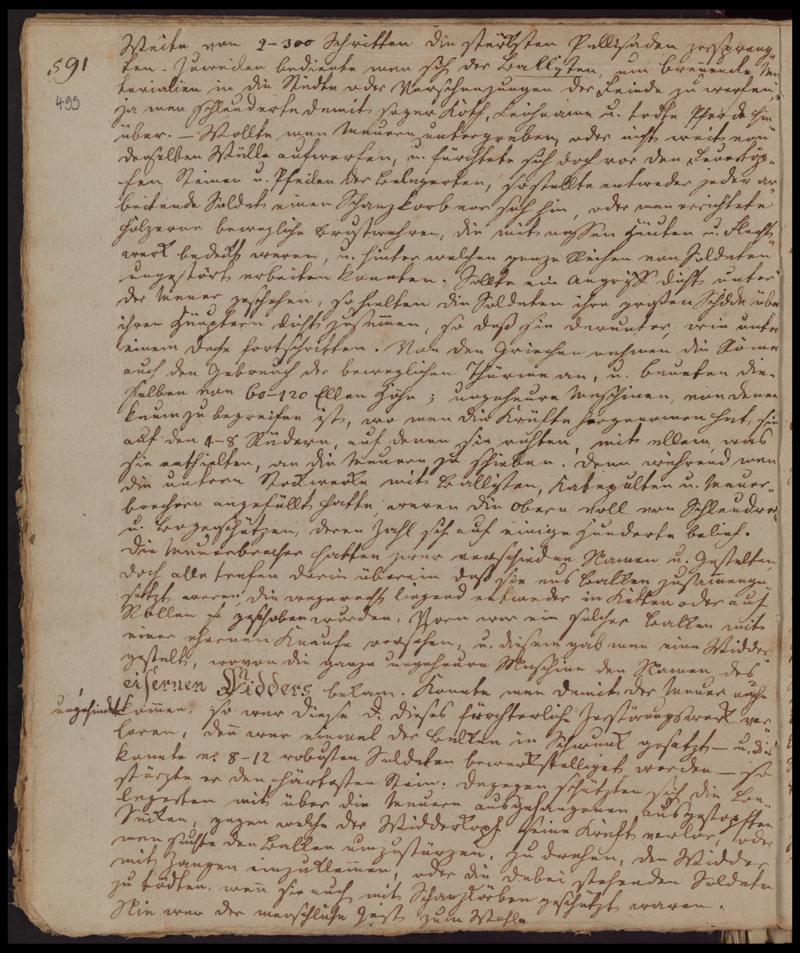 591
499
Weite von 2–300 Schritten die stärksten Pallisaden zerspreng„
ten. Zuweilen bediente man sich der Ballisten, um brennende Ma„
terialien in die Städte oder Verschanzungen der Feinde zu werfen,
ja man schleuderte damit sogar Koth, Leichname u. todte Pferde hin„
über. – Wollte man Mauern untergraben, oder nicht weit von
denselben Wälle aufwerfen, u. fürchtete sich doch vor den
Steinen u. Pfeilen der Belagerten, so stellte entweder jeder ar„
beitende Soldat einen Schanzkorb vor sich hin, oder man errichtete
hölzerne bewegliche Brustwehren, die mit nassen Häuten u. Flecht„
werk bedeckt waren, u. hinter welchen ganze Reihen von Soldaten
ungestört arbeiten konnten. Sollte ein Angriff dicht unter
der Mauer geschehen, so hielten die Soldaten ihre großen Schilde über
ihren Häuptern dicht zusammen, so daß sie darunter, wie unter
einem Dache fortschritten. Von den Griechen nahmen die Römer
auch den Gebrauch der beweglichen Thürme an, u. bauten die„
selben von 60–120 Ellen Höhe; ungeheure Maschinen, von denen
kaum zu begreifen ist, wo man die Kräfte hergenommen hat, sie
auf den 4–8 Rädern, auf denen sie ruhten, mit allem, was
sie enthielten, an die Mauern zu schieben. Denn während man
die untern Stockwerke mit Ballisten, Katapulten u. Mauer„
brechern angefüllt hatte, waren die obern voll von Schleuderern
u. Bogenschützen, deren Zahl sich auf einige Hunderte belief.
Die Mauerbrecher hatten zwar verschiedene Namen u. Gestalten,
doch alle trafen darin überein daß sie aus Balken zusammenge„
setzt waren, die wagerecht liegend entweder in Ketten oder auf
Rollen geschoben wurden. Vorn war ein solcher Balken mit
einem ehernen Knaufe versehen, u. diesem gab man eine Widder„
gestalt, wovon die ganze ungeheure Maschine den Namen des
eisernen Widders bekam. Konnte man damit der Mauer nahe
ungehindert kommen, so war diese d. dieses fürchterliche Zerstörungswerk ver„
loren, denn war einmal der Balken in Schwung gesetzt – u. dies
konnte v. 8–12 robusten Soldaten bewerkstelliget werden – so
stürzte er den härtesten Stein. Dagegen schützten sich die Be„
lagerten mit über die Mauern ausgehangenen ausgestopften
Säcken, gegen welche der Widderkopf seine Kraft verlor, oder
man suchte den Balken umzustürzen, zu drehen, den Widder
mit Zangen einzuklemmen, oder die dabei stehenden Soldaten
zu tödten, wenn sie auch mit Schanzkörben geschützt waren.
Nie war der menschliche Geist zum Wohle